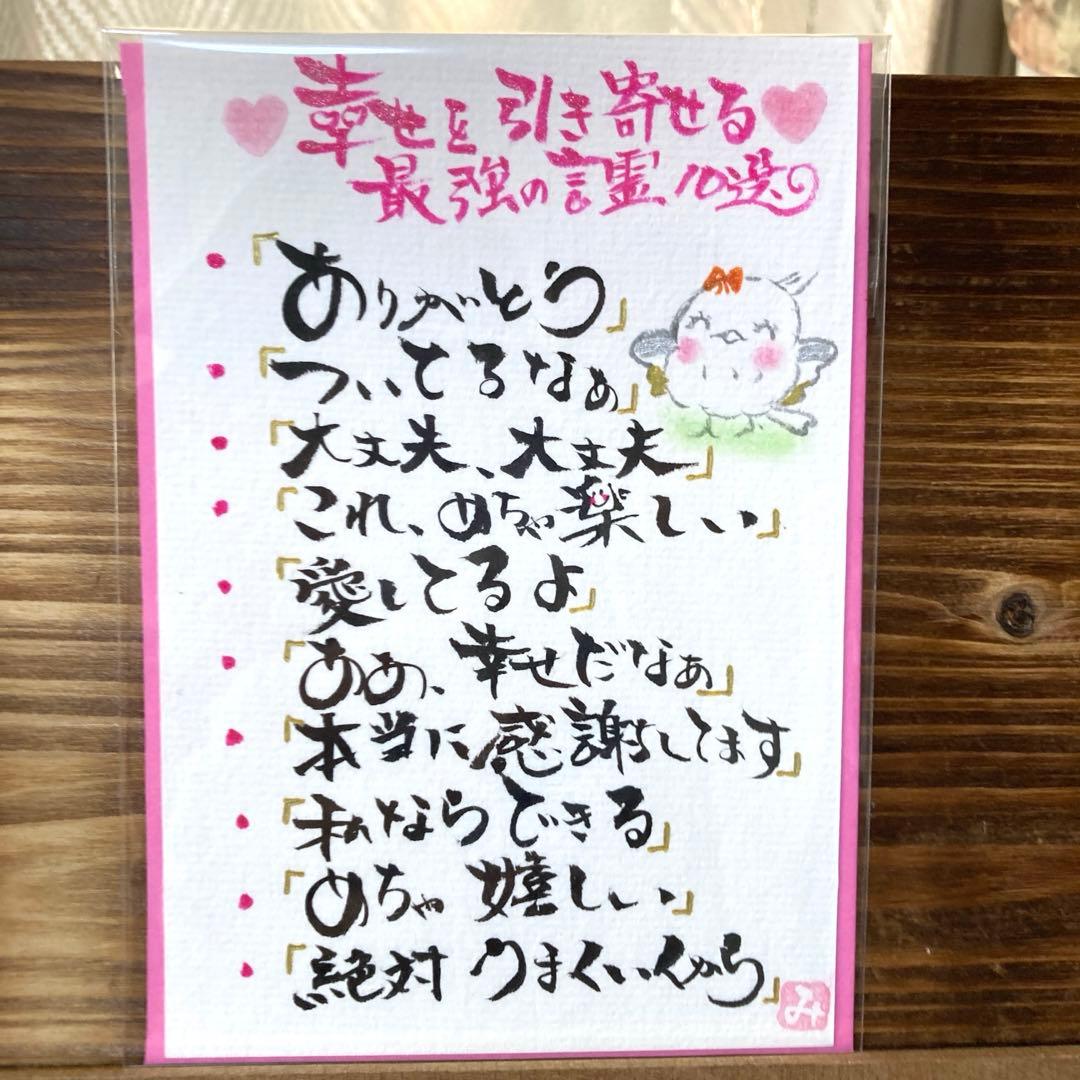 幸せを引き寄せる
最強の言霊10選
・「ありがとう」
・「ついてるなぁ」
・「大丈夫、大丈夫」
・「これ、めちゃ楽しい」
・「愛してるよ」
・「ああ、幸せだなぁ」
・「本当に感謝してます」
・「私ならできる」
・「めちゃ嬉しい」
・「絶対うまくいくから」
み